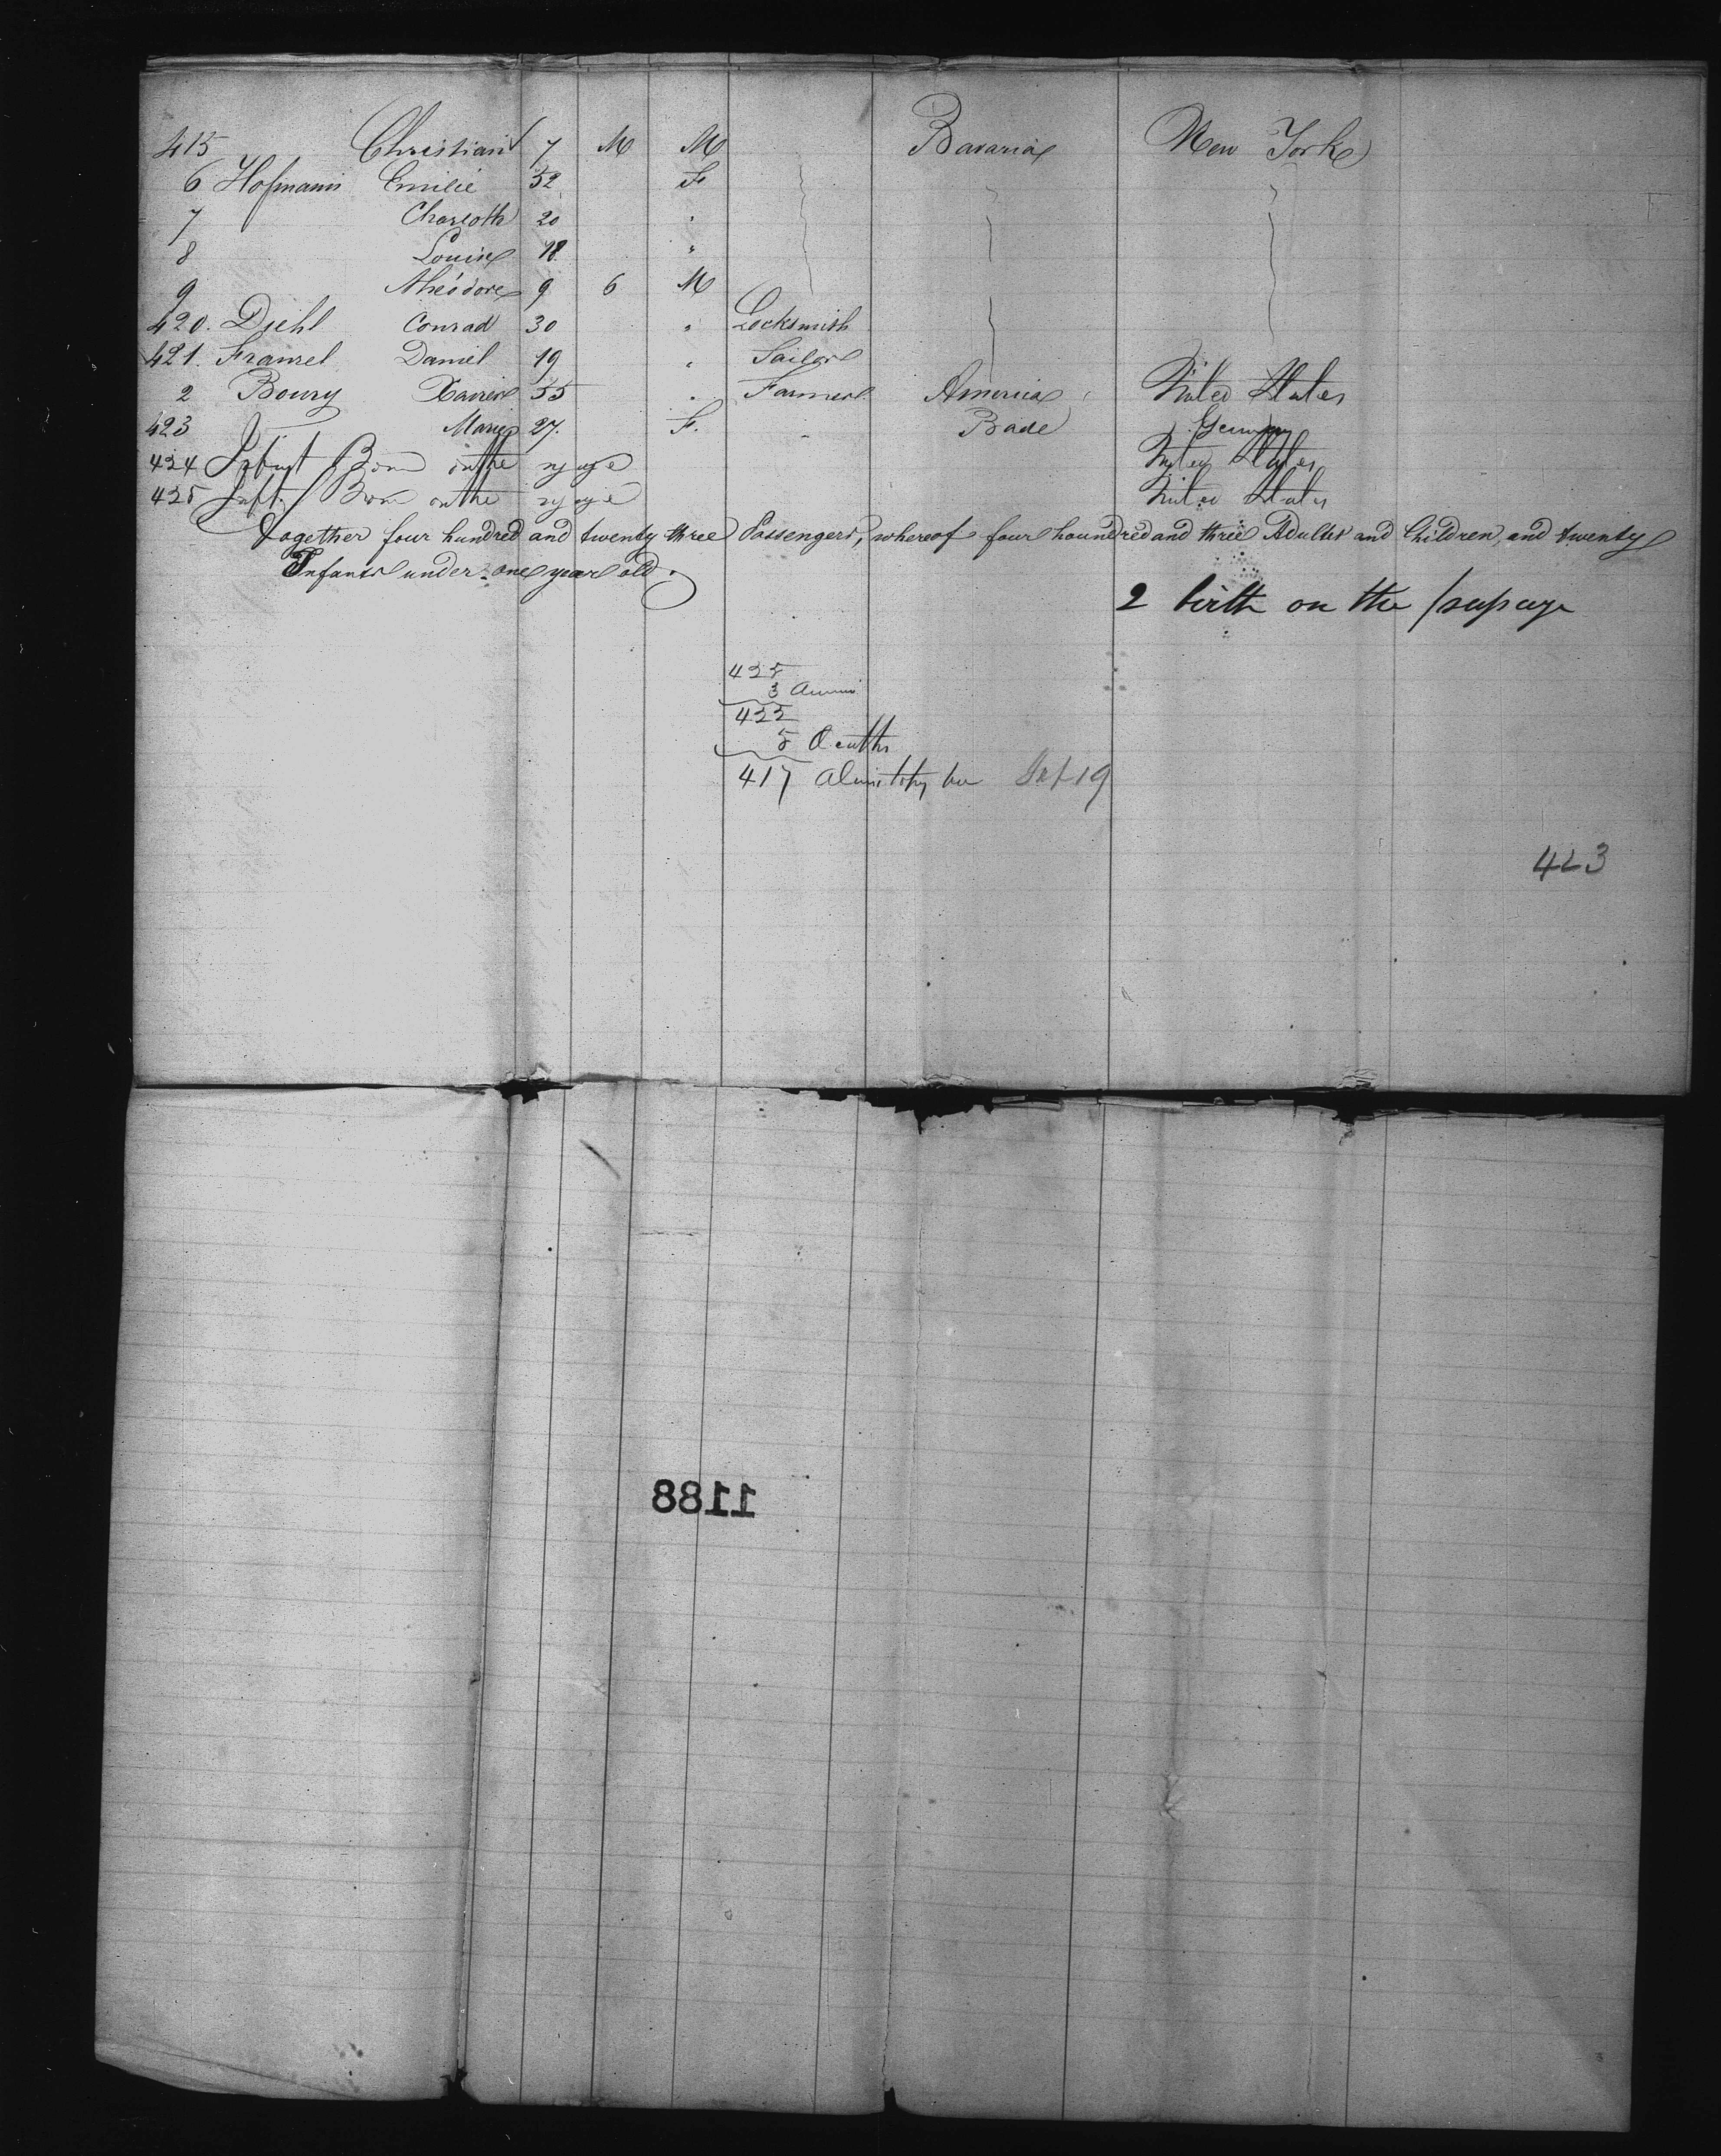 415 Christian 7 M M Bavaria New York
6 Hofmann Emilie 52 F
7 Charloth 20 "
8 Louise 18 "
9 Théodore 9 6 M
420. Diehl Conrad 30 " Locksmith
421. Franzel Daniel 19 " Sailor
2 Boury Xavier 55 " Farmer America United States
423 Marie 27. F. Bade Germany
424 Infant Born on the voyage United States
425 Inft. Born on the voyage United States
Together four hundred and twenty three Passengers, whereof four houndred and three Adults and Children, and twenty
Infants under one year old.
2 birth on the passage
425
3
422
5 Deaths
417 Sept 19
423
1188